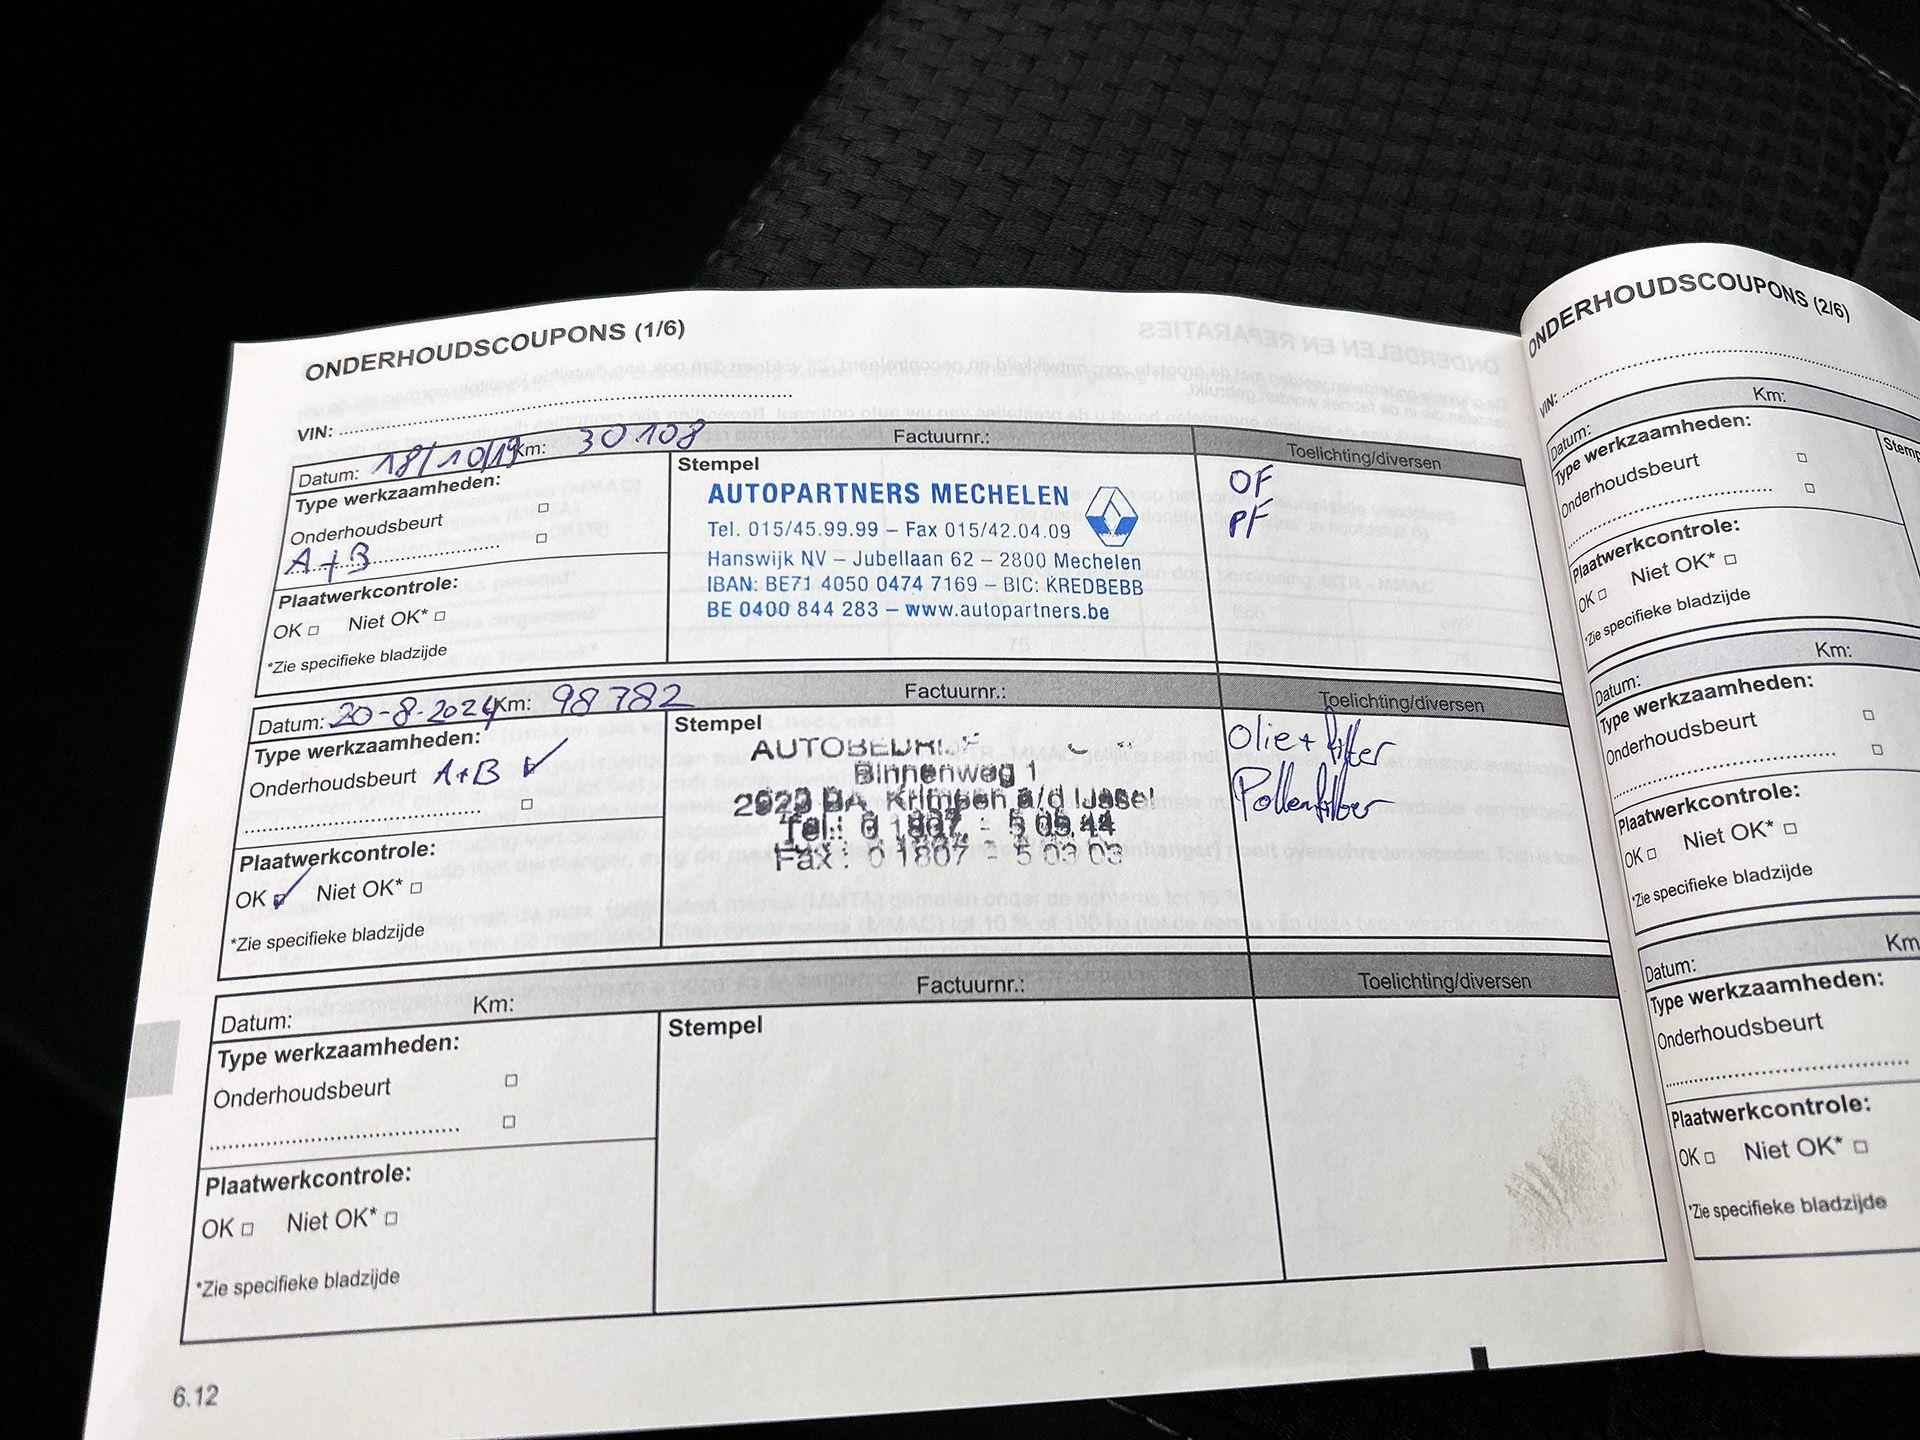 ONDERHOUDSCOUPONS (1/6)
VIN:
Datum: 18/10/19 Km: 30108 Factuurnr.: Toelichting/diversen
Type werkzaamheden:
Onderhoudsbeurt
A+B
Plaatwerkcontrole:
OK Niet OK*
*Zie specifieke bladzijde
Stempel
AUTOPARTNERS MECHELEN
Tel. 015/45.99.99 – Fax 015/42.04.09
Hanswijk NV – Jubellaan 62 – 2800 Mechelen
IBAN: BE71 4050 0474 7169 – BIC: KREDBEBB
BE 0400 844 283 – www.autopartners.be
OF
PF
Datum: 20-8-2024 Km: 98782 Factuurnr.: Toelichting/diversen
Type werkzaamheden:
Onderhoudsbeurt A+B
Plaatwerkcontrole:
OK Niet OK*
*Zie specifieke bladzijde
Stempel
AUTOBEDRIJF
Binnenweg 1
Krimpen a/d IJssel
Tel.: 0 1807 -
Fax : 0 1807 - 5 03 03
Olie + filter
Pollenfilter
Datum: Km: Factuurnr.: Toelichting/diversen
Type werkzaamheden:
Onderhoudsbeurt
Plaatwerkcontrole:
OK Niet OK*
*Zie specifieke bladzijde
Stempel
6.12
ONDERHOUDSCOUPONS (2/6)
VIN:
Datum: Km:
Type werkzaamheden:
Onderhoudsbeurt
Plaatwerkcontrole:
OK Niet OK*
*Zie specifieke bladzijde
Stemp
Datum: Km:
Type werkzaamheden:
Onderhoudsbeurt
Plaatwerkcontrole:
OK Niet OK*
*Zie specifieke bladzijde
Datum: Km
Type werkzaamheden:
Onderhoudsbeurt
Plaatwerkcontrole:
OK Niet OK*
*Zie specifieke bladzijde